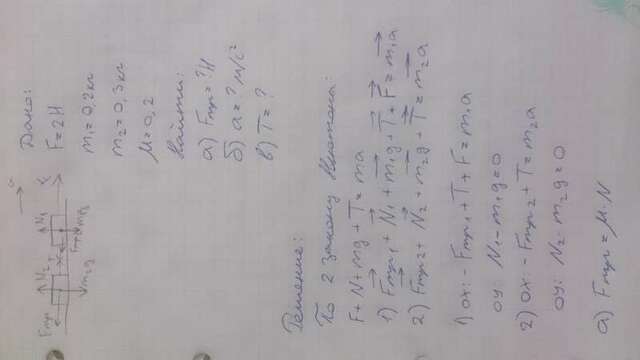 Fтр₂ N₂ T T N₁ F a
Fтр₁ m₁g
m₂g
Дано:
F = 2 Н
m₁ = 0,2 кг
m₂ = 0,3 кг
μ = 0,2
Найти:
а) Fтр = ? Н
б) a = ? м/с²
в) T = ?
Решение:
По 2 закону Ньютона:
F + N + mg + T = ma
1) Fтр₁ + N₁ + m₁g + T + F = m₁a
2) Fтр₂ + N₂ + m₂g + T = m₂a
1) ox: - Fтр₁ + T + F = m₁a
oy: N₁ - m₁g = 0
2) ox: - Fтр₂ + T = m₂a
oy: N₂ - m₂g = 0
а) Fтр = μ · N